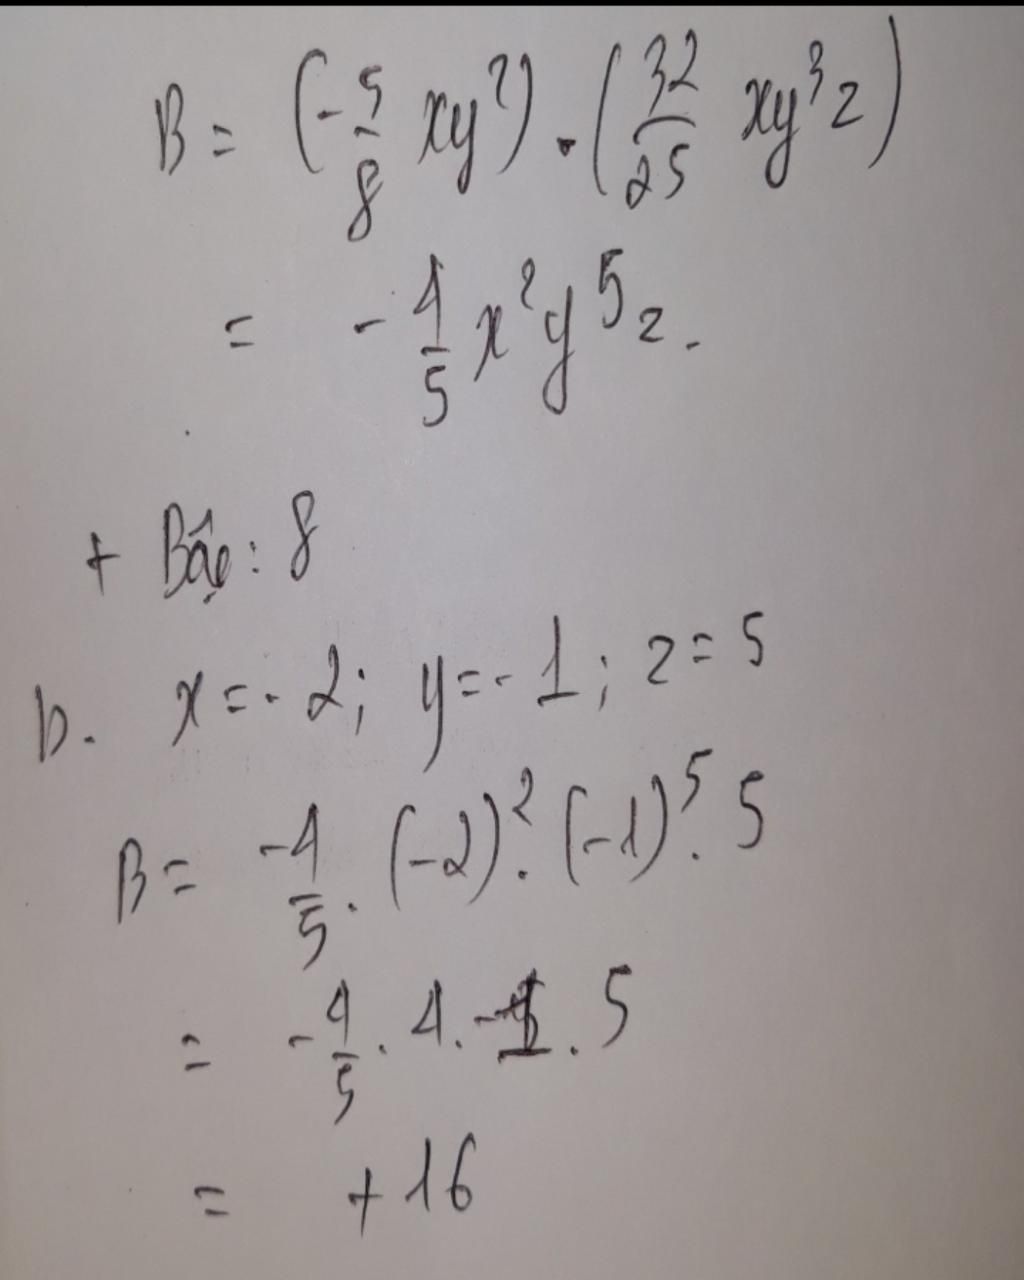 B = (-5/8 xy²) . (32/25 xy³z)
= -4/5 x²y⁵z.
+ Bậc: 8
b. x = -2; y = -1; z = 5
B = -4/5 . (-2)² . (-1)⁵ . 5
= -4/5 . 4 . -1 . 5
= +16